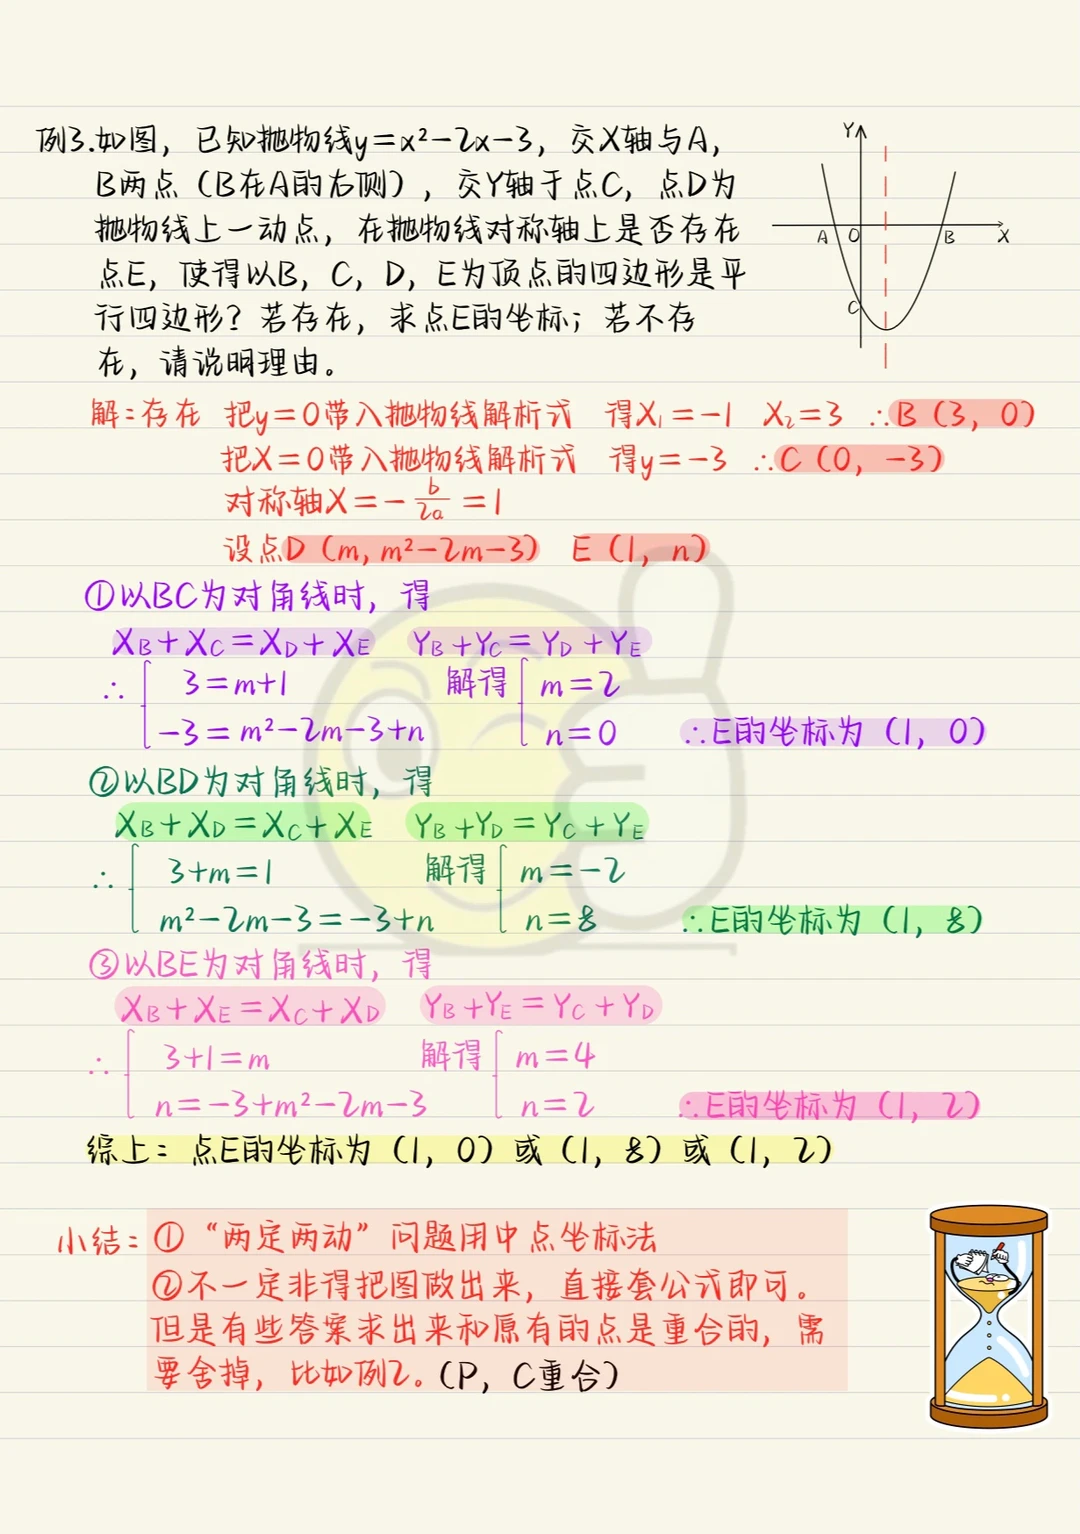 例3.如图，已知抛物线y=x²-2x-3，交X轴与A，
B两点（B在A的右侧），交Y轴于点C，点D为
抛物线上一动点，在抛物线对称轴上是否存在
点E，使得以B，C，D，E为顶点的四边形是平
行四边形？若存在，求点E的坐标；若不存
在，请说明理由。
Y
A O B X
C
解：存在 把y=0带入抛物线解析式 得X₁=-1 X₂=3 ∴B（3，0）
把X=0带入抛物线解析式 得y=-3 ∴C（0，-3）
对称轴X=-b/2a=1
设点D（m，m²-2m-3） E（1，n）
①以BC为对角线时，得
XB+XC=XD+XE YB+YC=YD+YE
∴ 3=m+1 解得 m=2
-3=m²-2m-3+n n=0 ∴E的坐标为（1，0）
②以BD为对角线时，得
XB+XD=XC+XE YB+YD=YC+YE
∴ 3+m=1 解得 m=-2
m²-2m-3=-3+n n=8 ∴E的坐标为（1，8）
③以BE为对角线时，得
XB+XE=XC+XD YB+YE=YC+YD
∴ 3+1=m 解得 m=4
n=-3+m²-2m-3 n=2 ∴E的坐标为（1，2）
综上：点E的坐标为（1，0）或（1，8）或（1，2）
小结：①“两定两动”问题用中点坐标法
②不一定非得把图做出来，直接套公式即可。
但是有些答案求出来和原有的点是重合的，需
要舍掉，比如例2。（P，C重合）